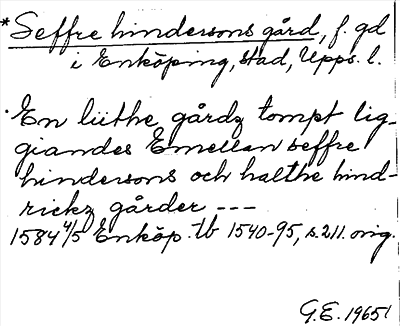 *Seffre hindersons gård, f. gd
i Enköping, stad, Upps. l.
En lüthe gårdz tompt lig-
giandes Emellan seffre
hindersons och halthe hind-
rickz gårder ---
1584 4/5 Enköp. tb 1540-95, s. 211. orig.
G.E. 1965